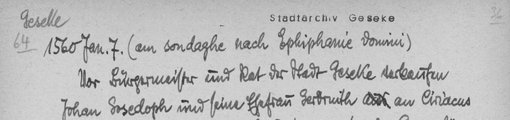 Geseke
Stadtarchiv Geseke
64
1560 Jan. 7. (am sondaghe nach Ephiphanie domini)
Vor Bürgermeister und Rat der Stadt Geseke verkaufen
Johan und seine Ehefrau Gerdruith an Ciriacus